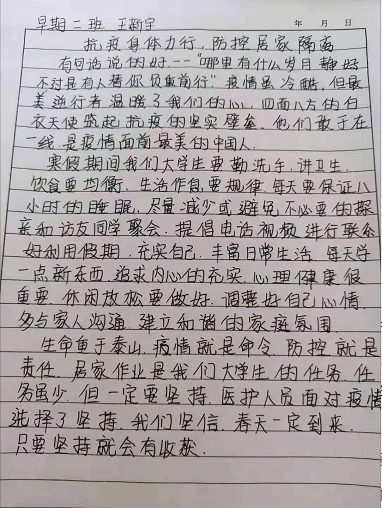 早期二班 王新宇
年 月 日
抗疫身体力行,防控居家隔离
有句话说的好--"哪里有什么岁月静好
不过是有人替你负重前行"疫情虽冷酷,但最
美逆行者温暖了我们的心,四面八方的白
衣天使筑起抗疫的坚实壁垒.他们敢于在
一线是疫情面前最美的中国人.
寒假期间我们大学生要勤洗手,讲卫生.
饮食要均衡.生活作息要规律.每天要保证八
小时的睡眠,尽量减少或避免不必要的探
亲和访友同学聚会.提倡电话视频进行联络
好利用假期.充实自己.丰富日常生活.每天学
一点新东西.追求内心的充实.心理健康很
重要.休闲放松要做好.调整好自己心情.
多与家人沟通.建立和谐的家庭氛围.
生命重于泰山.疫情就是命令.防控就是
责任.居家作业是我们大学生的任务.任
务虽少.但一定要坚持.医护人员面对疫情
选择了坚持.我们坚信.春天一定到来.
只要坚持就会有收获.